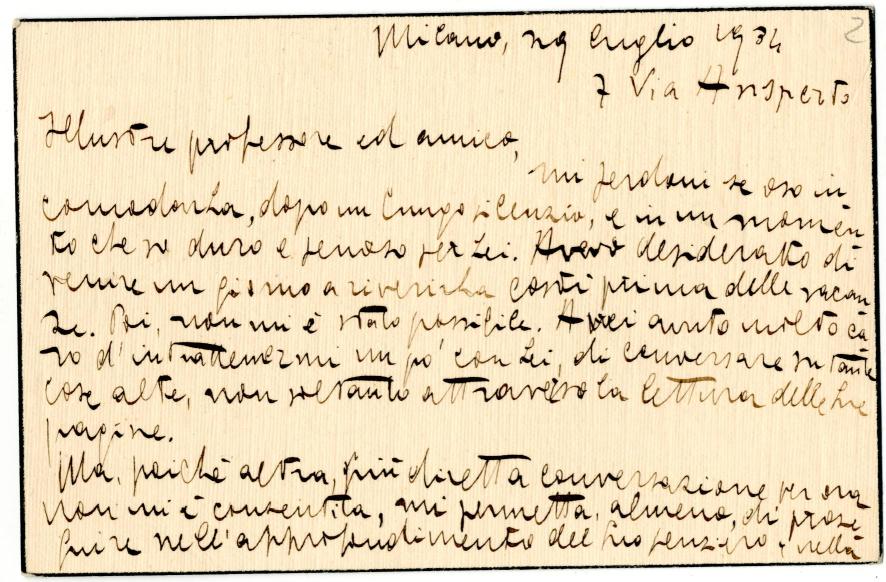 2
Milano, 29 luglio 1934
7 Via Ansperto
Illustre professore ed amico,
mi perdoni se oso in
comodarLa, dopo un lungo silenzio, e in un momen
to che so duro e penoso per Lei. Avevo desiderato di
venire un giorno a riverirLa costì prima delle vacan
ze. Poi, non mi è stato possibile. Avrei avuto molto ca
ro d'intrattenermi un po' con Lei, di conversare su tante
cose alte, non soltanto attraverso la lettura delle Sue
pagine.
Ma, poiché altra, più diretta conversazione per ora
non mi è consentita, mi permetta, almeno, di prose
guire nell'approfondimento del Suo pensiero, nella